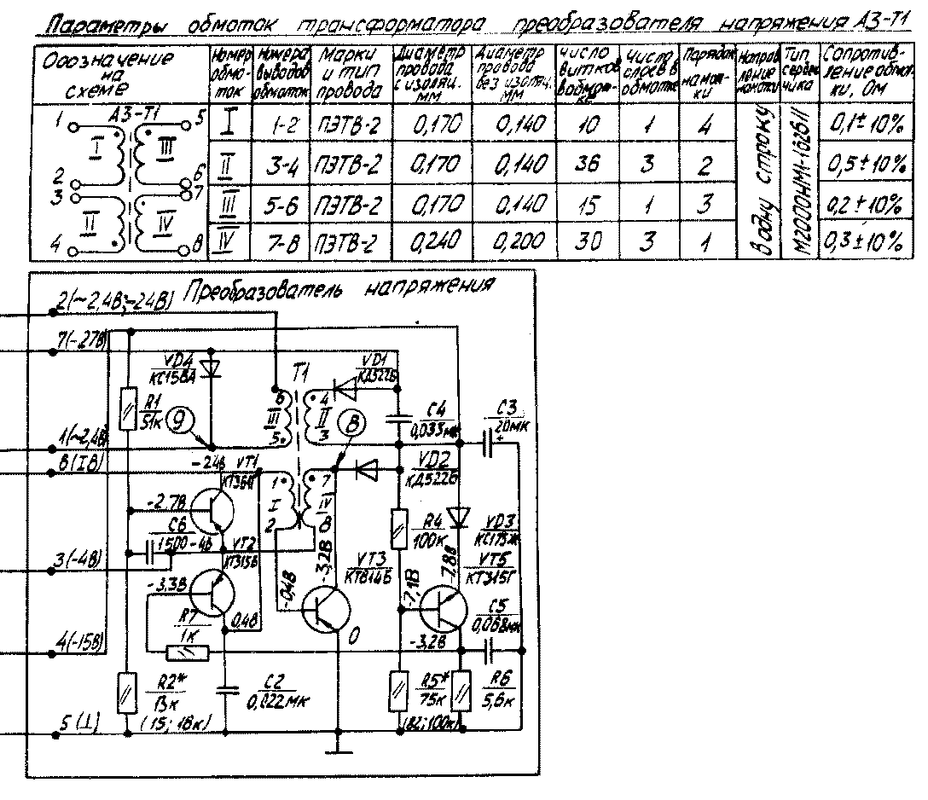 Параметры обмоток трансформатора преобразователя напряжения А3-Т1
Обозначение на схеме
Номер обмоток
Номера выводов обмоток
Марки и тип провода
Диаметр провода с изоляц. мм
Диаметр провода без изоляц. мм
Число витков в обмотке
Число слоев в обмотке
Порядок намотки
Направление намотки
Тип сердечника
Сопротивление обмотки, Ом
А3-Т1
1 5
I III
2 6
3 7
II IV
4 8
I 1-2 ПЭТВ-2 0,170 0,140 10 1 4 0,1±10%
II 3-4 ПЭТВ-2 0,170 0,140 36 3 2 0,5±10%
III 5-6 ПЭТВ-2 0,170 0,140 15 1 3 0,2±10%
IV 7-8 ПЭТВ-2 0,240 0,200 30 3 1 0,3±10%
в одну строку
Преобразователь напряжения
2(~2,4В;-24В)
7(-27В)
VD4
КС158А
Т1
VD1
КД522Б
R1
51к
9
6 4
III II
5 3
8
C4
0,033мк
C3
20мк
+
1(~2,4В)
8(IВ)
-2,4В
VT1
1 7
I IV
2 8
VD2
КД522Б
-2,7В
C6
1500
-4В
R4
100к
VD3
КС175Ж
VT2
КТ315Б
3(-4В)
-3,3В
-0,4В
-3,2В
VT3
КТ814Б
-7,8В
VT5
КТ315Г
-7,1В
R7
1к
0,4В
0
-3,2В
C5
0,068мк
4(-15В)
R2*
13к
(15;18к)
C2
0,022мк
R5*
75к
(82;100к)
R6
5,6к
5(⊥)